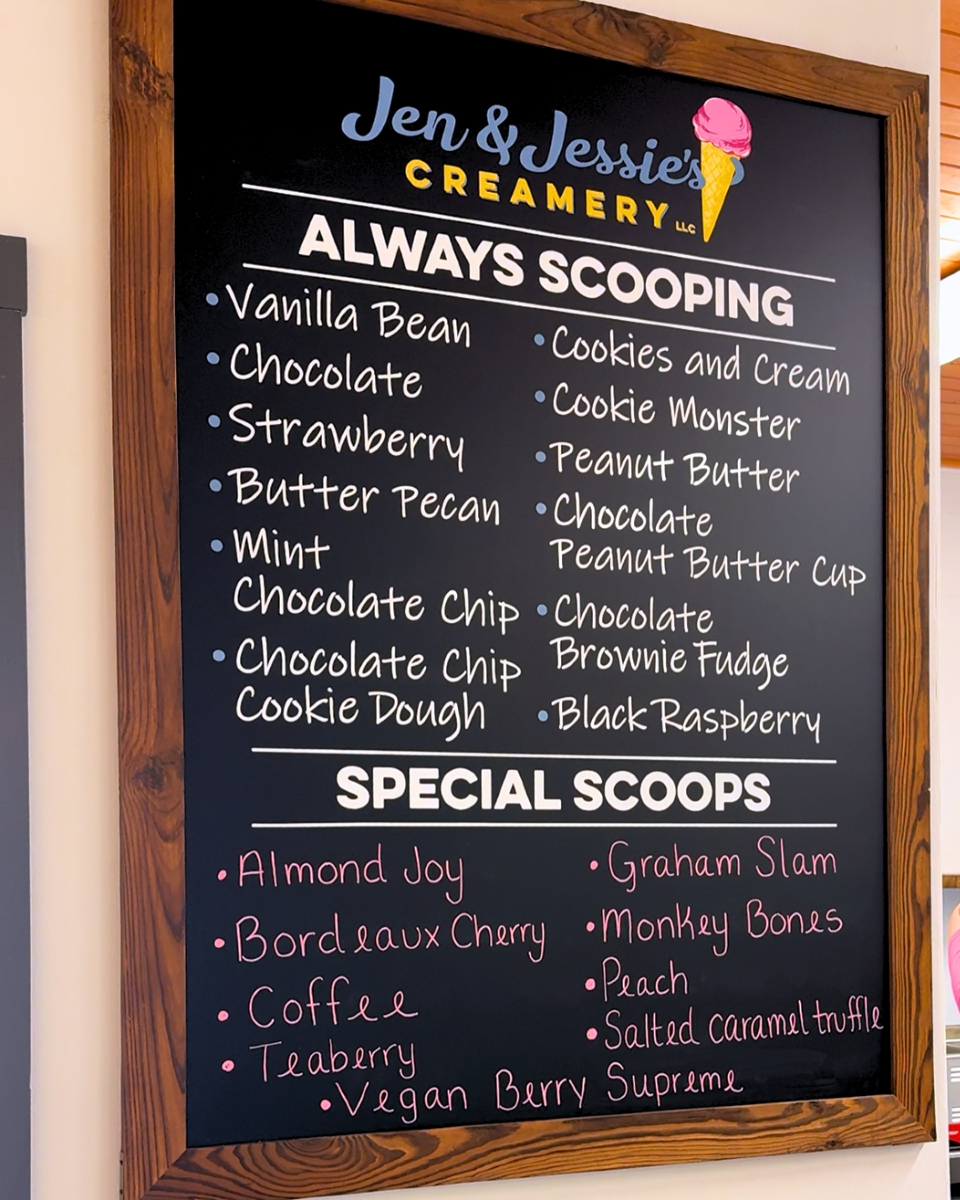 Jen & Jessie's
CREAMERY LLC
ALWAYS SCOOPING
• Vanilla Bean
• Chocolate
• Strawberry
• Butter Pecan
• Mint
Chocolate Chip
• Chocolate Chip
Cookie Dough
• Cookies and Cream
• Cookie Monster
• Peanut Butter
• Chocolate
Peanut Butter Cup
• Chocolate
Brownie Fudge
• Black Raspberry
SPECIAL SCOOPS
• Almond Joy
• Bordeaux Cherry
• Coffee
• Teaberry
• Graham Slam
• Monkey Bones
• Peach
• Salted Caramel truffle
• Vegan Berry Supreme